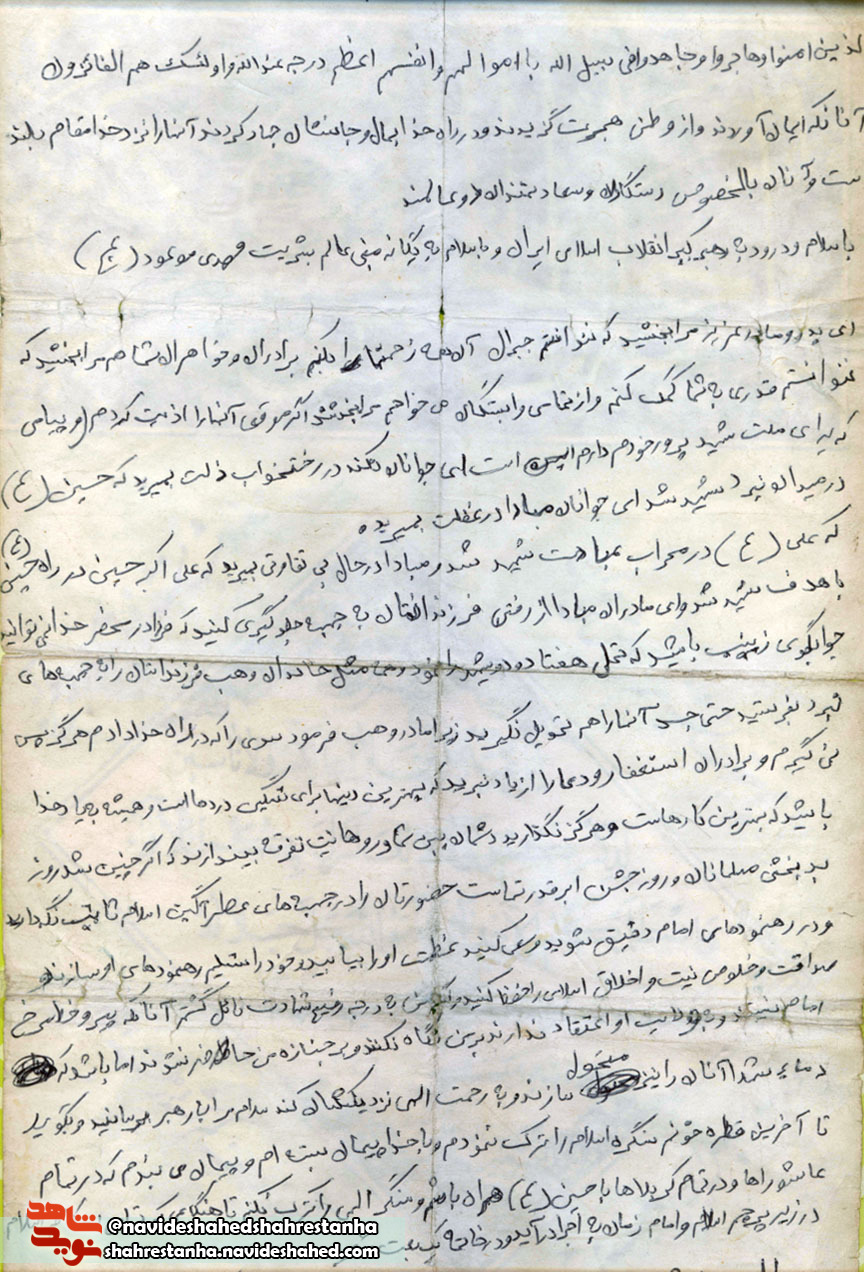 الذین امنوا و هاجروا و جاهدوا فی سبیل الله با اموالهم و انفسهم اعظم درجه عندالله و اولئک هم الفائزون
آنانکه ایمان آوردند و از وطن هجرت گزیدند و در راه خدا بمال و جانشان جهاد کردند آنها را نزد خدا مقام بلند
ست و آنان بالخصوص رستگاران و سعادتمندان دو عالمند
با سلام و درود به رهبر کبیر انقلاب اسلامی ایران و با سلام به یگانه منجی عالم بشریت مهدی موعود (عج)
ای پدر و مادر عزیز مرا ببخشید که نتوانستم جبران آن همه زحمت را بکنم برادران و خواهران شما هم مرا ببخشید که
نتوانستم قدری به شما کمک کنم و از تمامی وابستگان می خواهم مرا ببخشند اگر موقعی آنها را اذیت کردم (و پیامی
که برای ملت شهید پرور خودم دارم این است ای جوانان نکند در رختخواب ذلت بمیرید که حسین (ع)
در میدان نبرد شهید شد ای جوانان مبادا در غفلت بمیرید
که علی (ع) در محراب عبادت شهید شد و مبادا در حال بی تفاوتی بمیرید که علی اکبر حسین در راه حسین (ع)
با هدف شهید شد و ای مادران مبادا از رفتن فرزندانتان به جبهه جلوگیری کنید که فردا در محضر خدا نمی توانید
جوابگوی زینب باشید که تحمل هفتاد و دو شهید را نمود و همه مثل خاندان وهب فرزندانتان را به جبهه های
نبرد بفرستید حتی جسد آنها را هم تحویل نگیرید زیرا مادر وهب فرمود سری را که در راه خدا دادم هرگز پس
نمی گیرم و برادران استغفار و دعا را از یاد نبرید که بهترین درمانها برای تسکین دردها است و همیشه به یاد خدا
باشید که بهترین کارهاست و هرگز نگذارید دشمنان بین شما و روحانیت تفرقه بیندازند که اگر چنین شد روز
بدبختی مسلمانان و روز جشن ابرقدرتهاست حضورتان را در جبهه های عطرآگین اسلام ثابت نگهدارید
و در رهنمودهای امام دقیق شوید و سعی کنید عظمت او را بیابید و خود را تسلیم رهنمودهای او سازید و
صداقت و خلوص نیت و اخلاق اسلامی را حفظ کنید و اگر من به درجه رفیع شهادت نائل گشتم آنانکه پیرو خط سرخ
امام نیستند و به ولایت او اعتقاد ندارند بر من نگاه نکنند و بر جنازه من حاضر نشوند اما باشد که
دماء شهدا آنان را نیز متحول سازند و به رحمت الهی نزدیکشان کند سلام مرا به رهبر برسانید و بگوئید
تا آخرین قطره خونم سنگر اسلام را ترک ننمودم و با خدا پیمان بسته ام و پیمان می بندم که در تمام
عاشوراها و در تمام کربلاها با حسین (ع) همراه باشم و سنگر الهی را ترک نکنم تا هنگامی که اسلام
در زیر پرچم اسلام و امام زمان به اجرا درآید و در خاتمه
شاهد
نوید
@navideshahedshahrestanha
shahrestanha.navideshahed.com